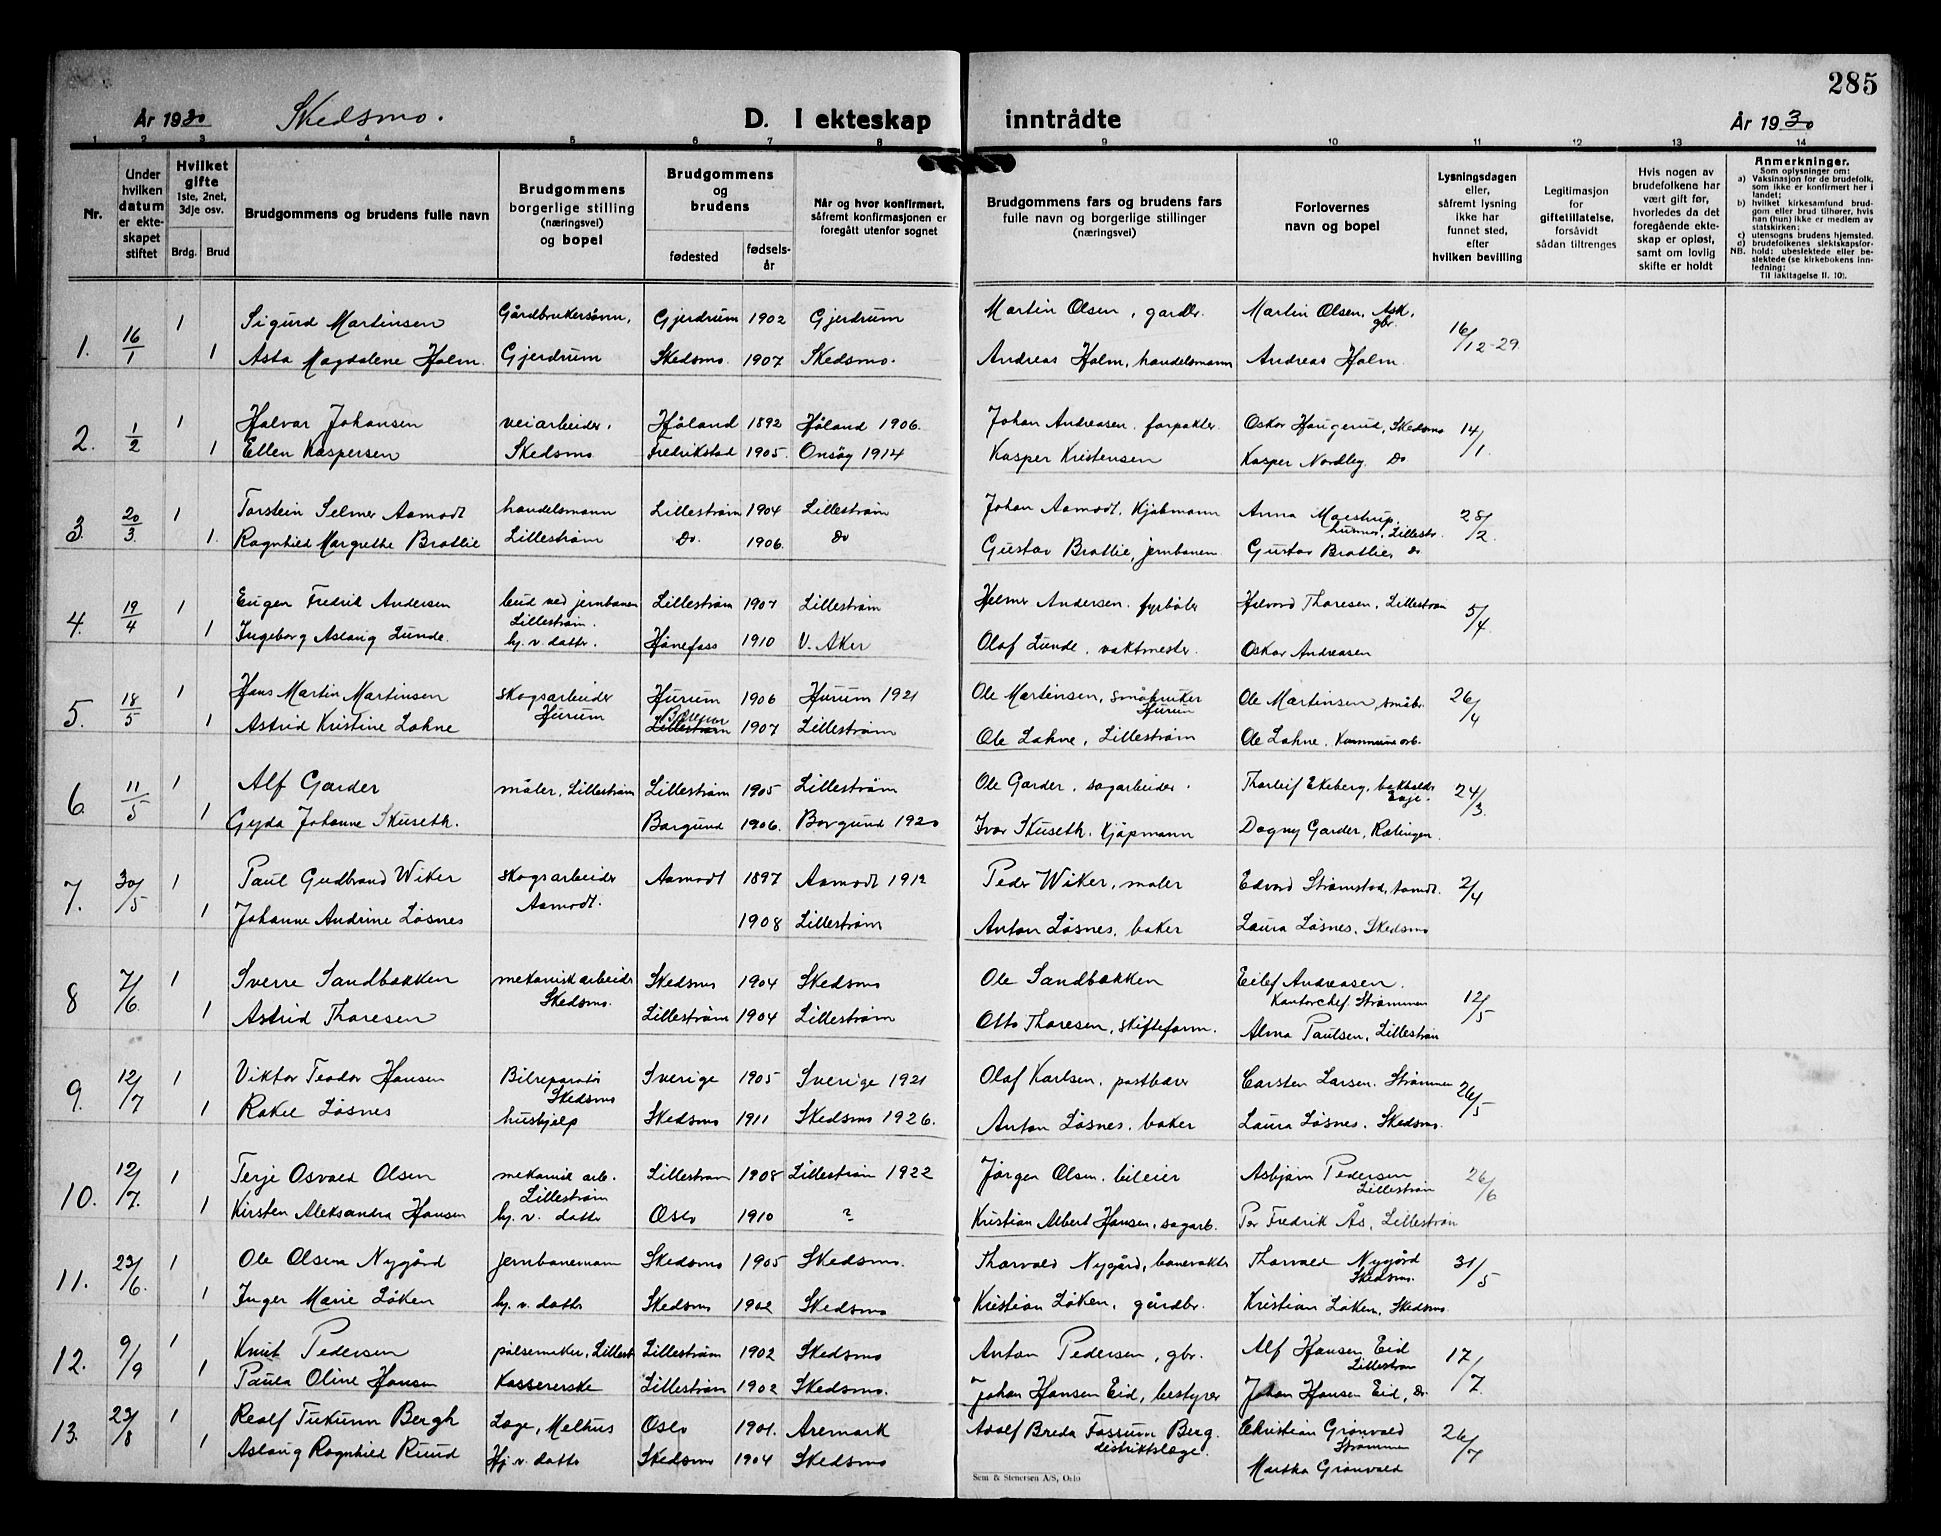 285
År 1930 Skedsmo. D. I ekteskap inntrådte År 1930
1 2 3 4 5 6 7 8 9 10 11 12 13 14
Nr.
Under hvilken datum er ekteskapet stiftet
Hvilket gifte 1ste, 2net, 3dje osv.
Brdg. Brud
Brudgommens og brudens fulle navn
Brudgommens borgerlige stilling (næringsvei) og bopel
Brudgommens og brudens
fødested fødselsår
Når og hvor konfirmert, såfremt konfirmasjonen er foregått utenfor sognet
Brudgommens fars og brudens fars fulle navn og borgerlige stillinger (næringsvei)
Forlovernes navn og bopel
Lysningsdagen eller, såfremt lysning ikke har funnet sted, efter hvilken bevilling
Legitimasjon for giftetillatelse, forsåvidt sådan tiltrenges
Hvis nogen av brudefolkene har vært gift før, hvorledes da det foregående ekteskap er opløst, samt om lovlig skifte er holdt
Anmerkninger.
Som oplysninger om:
a) Vaksinasjon for de brudefolk, som ikke er konfirmert her i landet;
b) hvilket kirkesamfund brudgom eller brud tilhører, hvis han (hun) ikke er medlem av statskirken;
c) utensogns brudens hjemsted.
d) brudefolkenes slektskapsforhold: ubeslektede eller beslektede (se kirkebokens innledning:
NB. Til iakttagelse II. 10).
1. 16/1 1 Sigurd Martinsen Gårdbrukersønn, Gjerdrum 1902 Gjerdrum Martin Olsen, gardbr. Martin Olsen, Ask, gbr. 16/12-29.
1 Asta Magdalene Holm. Gjerdrum Skedsmo. 1907 Skedsmo. Andreas Holm, handelsmann Andreas Holm.
2. 1/2 1 Halvar Johansen veiarbeider, Høland 1892 Høland 1906. Johan Andreasen, forpakter Oskar Haugerud, Skedsmo 14/1.
1 Ellen Kaspersen Skedsmo Fredrikstad 1905. Onsøy 1914 Kasper Kristensen Kasper Nordby. Do
3. 20/3. 1 Torstein Selmer Aamodt handelsmann Lillestrøm 1904 Lillestrøm Johan Aamodt, Kjøbmann Anna Maestrup, Lillestr. 28/2.
1. Ragnhild Margrethe Bratlie Lillestrøm Do. 1906. Do Gustav Bratlie, jernbanem. Gustav Bratlie, Do
4. 19/4 1 Eugen Fredrik Andersen bud ved jernbanen Lillestrøm. Lillestrøm 1907 Lillestrøm Helmer Andersen, fyrbøter Halvard Thoresen, Lillestrøm 5/4.
1 Ingeborg Aslaug Lunde. hj. v. datter. Hønefoss 1910 V. Aker Olaf Lunde, vaktmester. Oskar Andreasen
5. 18/5 1 Hans Martin Martinsen skogsarbeider Hurum Hurum 1906 Hurum 1921 Ole Martinsen, småbruker Hurum Ole Martinsen, småbr. 26/4
1 Astrid Kristine Lahne Lillestrøm 1907 Lillestrøm Ole Lahne, Lillestrøm Ole Lahne, Kommunearb.
6. 11/5 1 Alf Garder måler, Lillestrøm Lillestrøm 1905 Lillestrøm Ole Garder, sagarbeider. Thorleif Ekeberg, 24/3.
1 Gyda Johanne Skuseth. Borgund 1906. Borgund 1920 Ivar Skuseth, Kjøpmann Dagny Garder, Rælingen.
7. 30/5 1 Paul Gudbrand Wiker skogsarbeider Aamodt. Aamodt 1897 Aamodt 1912 Peder Wiker, maler Edvard Strømstad, Aamdt. 2/4
1 Johanne Andrine Løsnes 1908 Lillestrøm Anton Løsnes, baker Laura Løsnes, Skedsmo
8 7/6. 1 Sverre Sandbakken mekanisk arbeider Skedsmo. Skedsmo 1904 Skedsmo Ole Sandbakken Eilef Andreasen. Kontorchef Strømmen 12/5
1 Astrid Thoresen Lillestrøm 1904 Lillestrøm Otto Thoresen, skifteform. Alma Paulsen, Lillestrøm
9. 12/7 1 Viktor Teodor Hansen Bilreparatør Skedsmo Sverige 1905 Sverige 1921 Olaf Karlsen, postbærer Carsten Larsen, Strømmen 26/5
1 Rakel Løsnes hushjelp Skedsmo 1911 Skedsmo 1926. Anton Løsnes, baker Laura Løsnes, Skedsmo.
10. 12/7. 1 Terje Osvald Olsen mekanisk arb. Lillestrøm Lillestrøm 1908 Lillestrøm 1922 Jørgen Olsen, bileier Asbjørn Pedersen Lillestrøm 26/6
1 Kirsten Aleksandra Hansen hj. v. datter Oslo 1910 ? Kristian Albert Hansen, sagarb. Per Fredrik Ås, Lillestrøm
11. 23/6. 1 Ole Olsen Nygård Jernbanemann Skedsmo 1905 Skedsmo. Thorvald Nygård, banevokter Thorvald Nygård Skedsmo. 31/5
1 Inger Marie Løken hj. v. datter Skedsmo 1902 Skedsmo Kristian Løken, gårdbr. Kristian Løken, Skedsmo.
12. 9/9 1 Knut Pedersen pølsemaker, Lillest Lillestrøm 1902 Skedsmo Anton Pedersen, gbr. Alf Hansen Eid Lillestrøm 17/7
1 Paula Oline Hansen Kassererske Lillestrøm 1902 Skedsmo. Johan Hansen Eid, bestyrer Johan Hansen Eid, Do
13. 23/8 1 Realf Bergh Læge, Melhus Oslo 1901. Aremark Adolf Breda Fossum Berg. distriktslæge. Christian Grønvold Strømmen 26/7
1 Aslaug Ragnhild Ruud Hj. v. datter Skedsmo 1904 Skedsmo Martha Grønvold
Sem & Stenersen A/S, Oslo